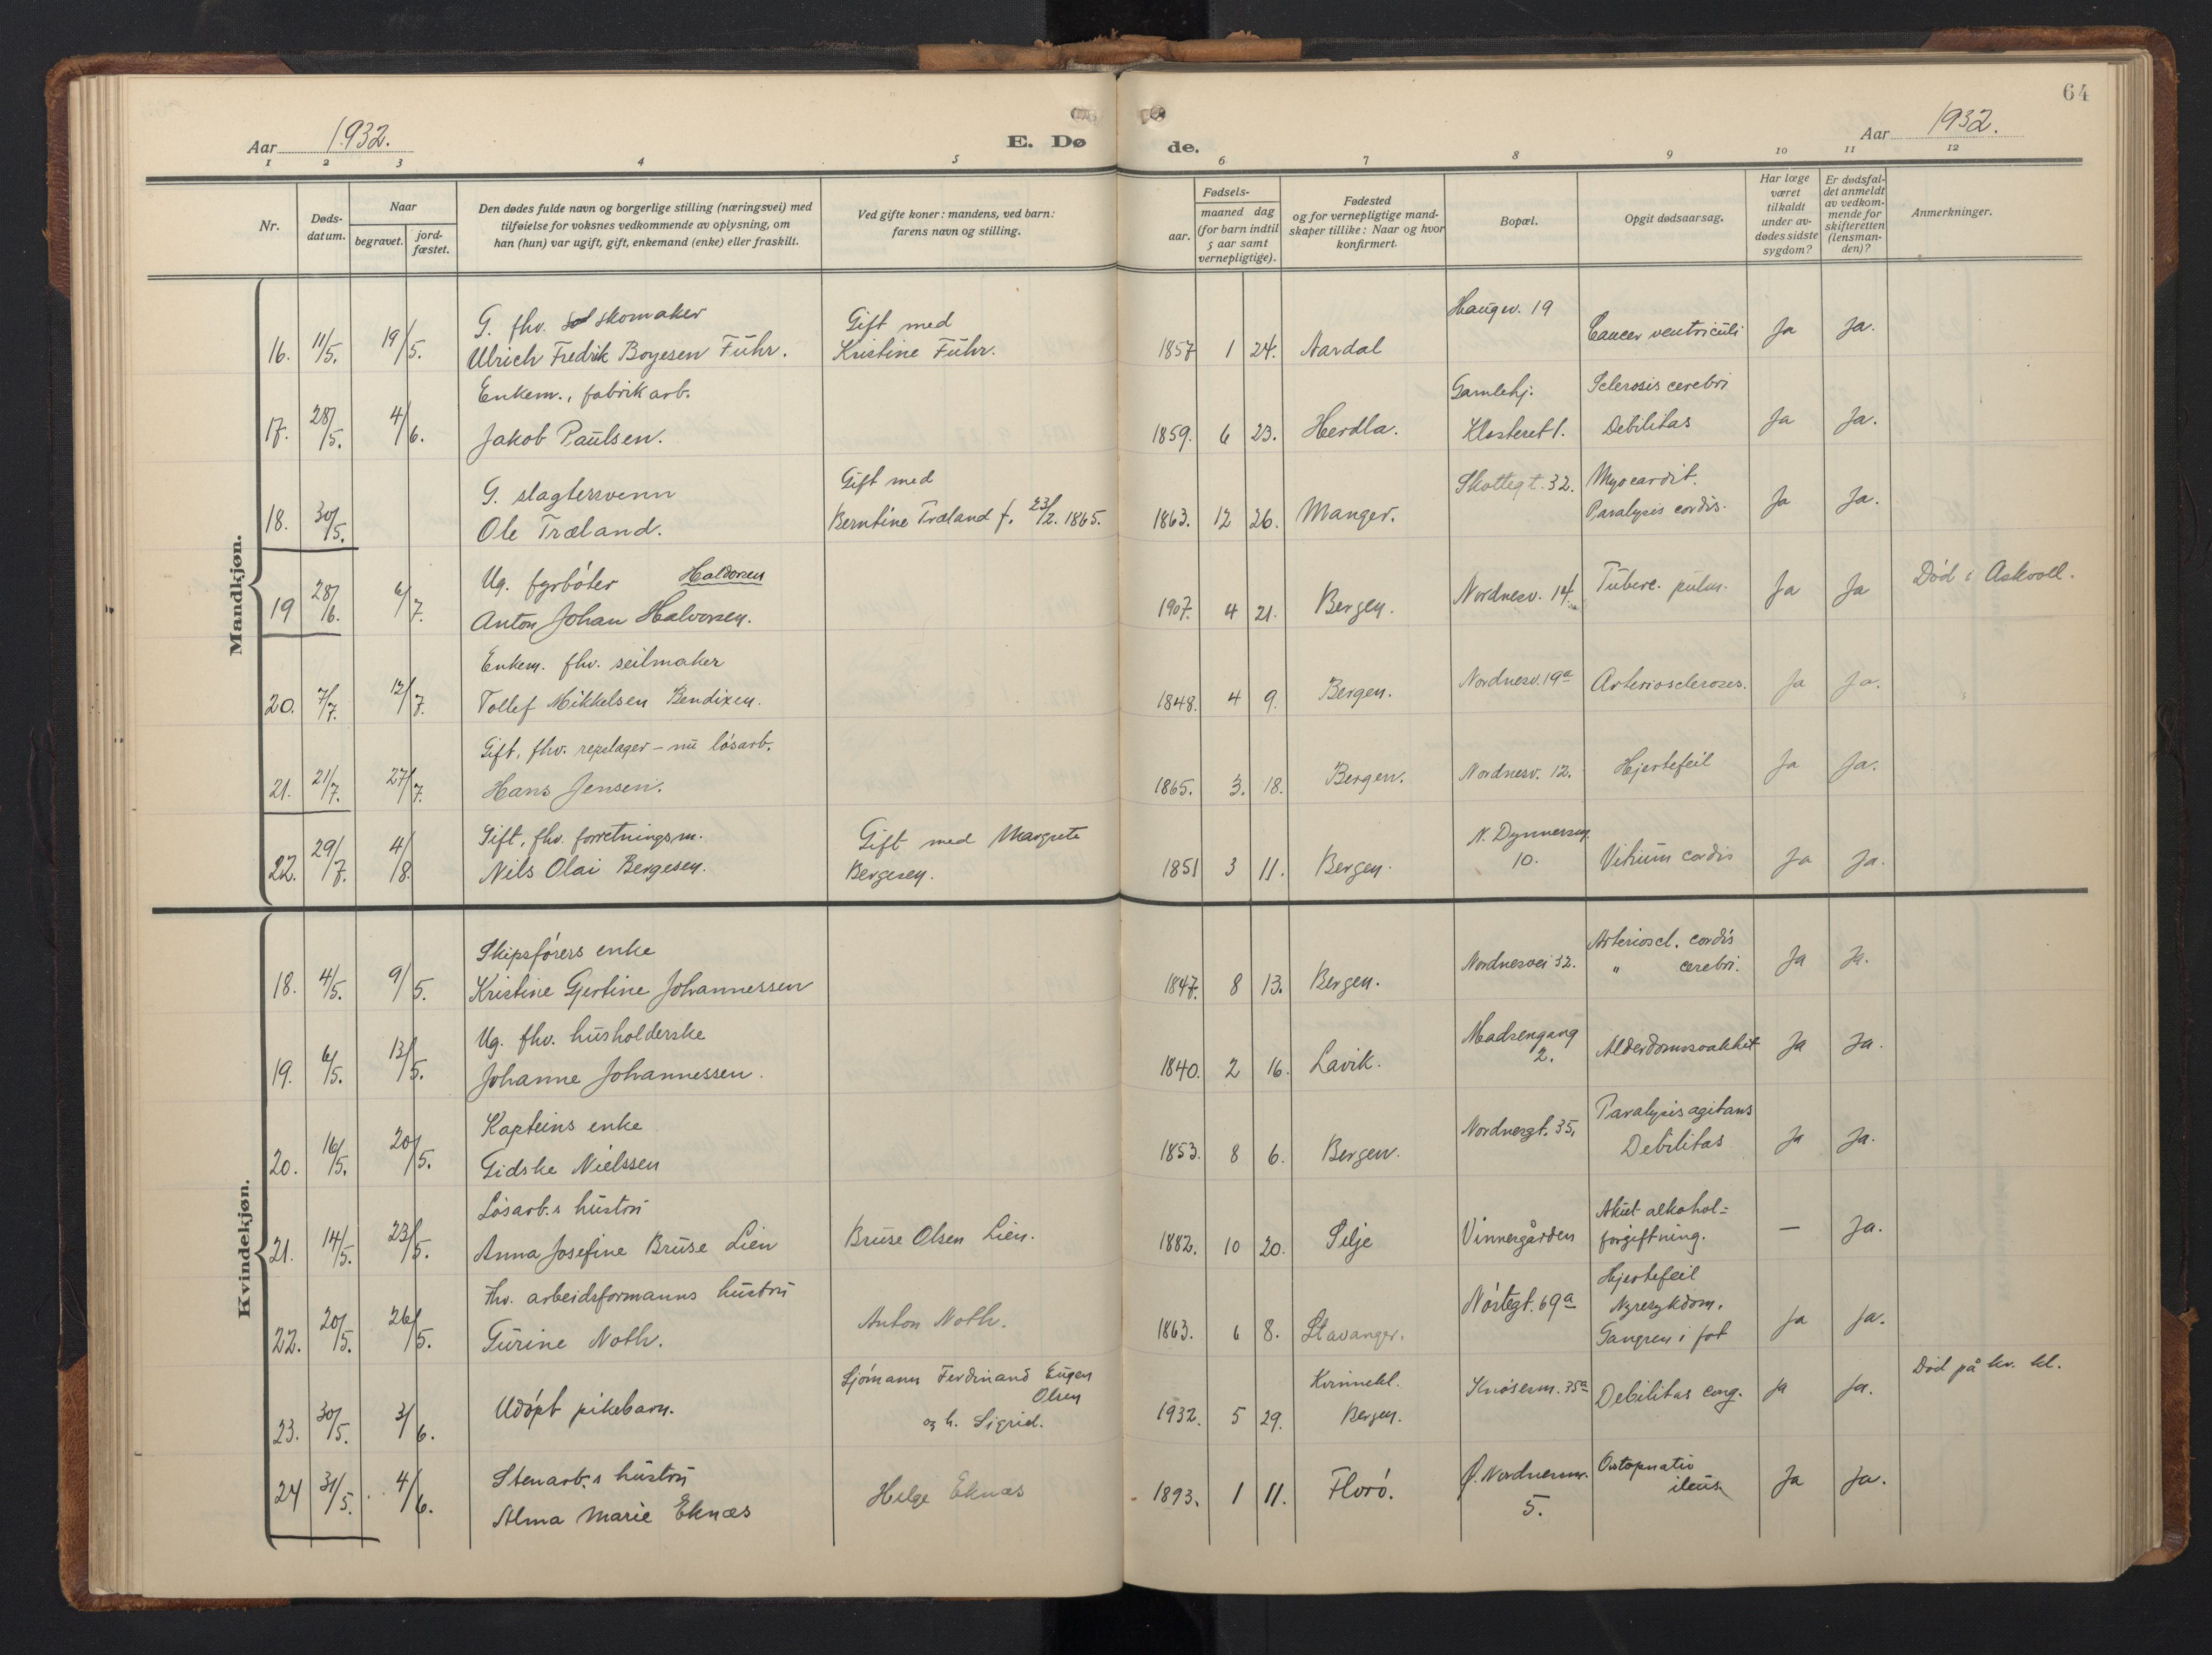 64
Aar 1932.
E. Dø
de.
Aar 1932.
1 2 3 4 5 6 7 8 9 10 11 12
Nr.
Døds-
datum.
Naar
begravet.
jord-
fæstet.
Den dødes fulde navn og borgerlige stilling (næringsvei) med
tilføielse for voksnes vedkommende av oplysning, om
han (hun) var ugift, gift, enkemand (enke) eller fraskilt.
Ved gifte koner: mandens, ved barn:
farens navn og stilling.
Fødsels-
aar.
maaned dag
(for barn indtil
5 aar samt
vernepligtige).
Fødested
og for vernepligtige mand-
skaper tillike: Naar og hvor
konfirmert.
Bopæl.
Opgit dødsaarsag.
Har læge
været
tilkaldt
under av-
dødes sidste
sygdom?
Er dødsfal-
det anmeldt
av vedkom-
mende for
skifteretten
(lensman-
den)?
Anmerkninger.
Mandkjøn.
G. fhv. skomaker Gift med Haugev. 19
16. 11/5. 19/5. Ulrich Fredrik Boyesen Führ. Kristine Führ. 1857 1 24. Aardal Cancer ventriculi Ja Ja.
Enkem., fabrikarb. Gamlehj. Sclerosis cerebri
17. 28/5. 4/6. Jakob Paulsen. 1859. 6 23. Herdla. Klosteret 1. Debilitas Ja Ja.
G. slagtersvenn Gift med Skottegt. 32. Myocardit.
18. 30/5. Ole Træland. Berntine Træland f. 23/2. 1865. 1863. 12 26. Manger. Paralysis cordis. Ja Ja.
Ug. fyrbøter Haldorsen
19 28/6. 6/7. Anton Johan Halvorsen. 1907. 4 21. Bergen. Nordnesv. 14. Tuberc. pulm. Ja Ja Død i Askvoll.
Enkem. fhv. seilmaker
20. 7/7. 12/7. Tollef Mikkelsen Bendixen. 1848. 4 9. Bergen. Nordnesv. 19a Arterioscleroses. Ja Ja.
Gift, fhv. repslager – nu løsarb.
21. 21/7. 27/7. Hans Jensen. 1865. 3. 18. Bergen. Nordnesv. 12. Hjertefeil Ja Ja.
Gift, fhv. forretningsm. Gift med Margrete N. Dynnersm.
22. 29/7. 4/8. Nils Olai Bergesen. Bergesen. 1851 3 11. Bergen. 10. Vitium cordis Ja Ja.
Kvindekjøn.
Skipsførers enke Arterioscl. cordis
18. 4/5. 9/5. Kristine Gjertine Johannessen 1847. 8 13. Bergen. Nordnesvei 32. " cerebri. Ja Ja.
Ug. fhv. husholderske Madsengang
19. 6/5. 13/5. Johanne Johannessen. 1840. 2 16. Lavik. 2. Alderdomssvakhet Ja Ja.
Kapteins enke Nordnesgt. 35. Paralysis agitans
20. 16/5. 20/5. Gidske Nielssen 1853. 8 6. Bergen. Debilitas Ja Ja.
Løsarb.s hustru Akut alkohol=
21. 14/5. 23/5. Anna Josefine Bruse Lien Bruse Olsen Lien. 1882. 10 20. Selje Vinnergården forgiftning. — Ja.
Fhv. arbeidsformanns hustru Hjertefeil
Nøstegt. 69a Nyresykdom.
22. 20/5. 26/5. Gurine Noth. Anton Noth. 1863. 6 8. Stavanger. Gangren i fot Ja Ja.
Sjømann Ferdinand Eugen Kvinnekl. Død på kv. kl.
Udøpt pikebarn. Olsen Knøsesm. 35a Debilitas cong. Ja Ja.
23. 30/5. 3/6. og h. Sigrid. 1932. 5 29. Bergen.
Stenarb.s hustru
24 31/5. 4/6. Helge Eknæs 1893. 1 11. Florø. Ø. Nordnessm. ileus Ja Ja.
Alma Marie Eknæs 5.